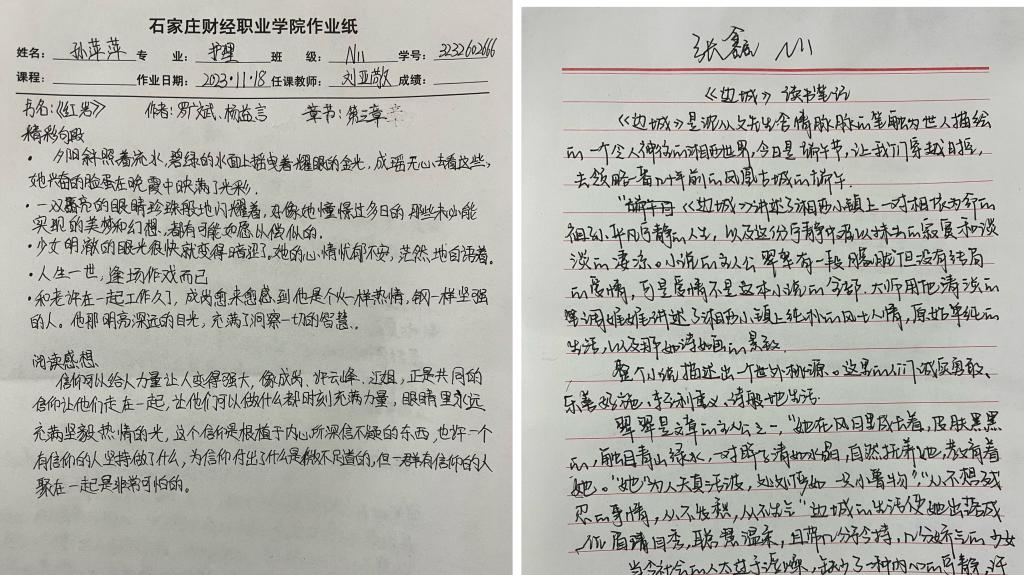 石家庄财经职业学院作业纸
姓名：孙萍萍 专 业：护理 班 级：N11 学号：3232602666
课程： 作业日期：2023·11·18 任课教师：刘亚敞 成绩：
书名：《红岩》 作者：罗广斌、杨益言 章节：第三章
精彩句段
· 夕阳斜照着流水，碧绿的水面上摇曳着耀眼的金光，成瑶无心去看这些，
她兴奋的脸蛋在晚霞中映满了光彩.
· 一双墨亮的眼睛珍珠般地闪耀着，好像她憧憬过多日的那些未必能
实现的美梦和幻想，都有可能如愿以偿似的.
· 少女明澈的眼光很快就变得暗涩了，她的心情忧郁不安，茫然地自语着。
· 人生一世，逢场作戏而已
· 和老许在一起工作久了，成岗愈来愈感到他是个火一样热情，钢一样坚强
的人。他那明亮深远的目光，充满了洞察一切的智慧.
阅读感想
信仰可以给人力量让人变得强大，像成岗、许云峰、江姐，正是共同的
信仰让他们走在一起，让他们可以做什么都时刻充满力量，眼睛里永远
充满坚毅热情的光，这个信仰是根植于内心所深信不疑的东西，也许一个
有信仰的人坚持做了什么，为信仰付出了什么是微不足道的，但一群有信仰的人
聚在一起是非常可怕的。
张鑫 N11
《边城》读书笔记
《边城》是沈从文先生含情脉脉的笔触为世人描绘
的一个令人神往的湘西世界，今日是端午节，让我们穿越时空，
去领略一番几十年前的凤凰古城的端午.
《边城》讲述了湘西小镇上一对相依为命的
祖孙平凡宁静的人生，以及这份宁静中难以抹去的寂寞和淡
淡的凄凉。小说的主人公翠翠有一段朦胧但没有结局
的爱情，可是爱情不是这本小说的全部，大师用他清淡的
笔调娓娓讲述了湘西小镇上纯朴的风土人情，原始单纯的
生活，以及那如诗如画的景致.
整个小说描述出一个世外桃源。这里的人们诚实勇敢、
乐善好施、轻利重义、诗般地生活.
翠翠是文章的主人公之一，“她在风日里成长着，皮肤黑黑
的，触目青山绿水，一对眸子清如水晶，自然抚养她，教育着
她。”她“为人天真活泼，处处俨如一只小兽物”，“从不想残
忍的事情，从不发愁，从不生气”边城的生活使她出落成
眉清目秀，聪慧温柔，自带几份矜持，几份娇羞的少女